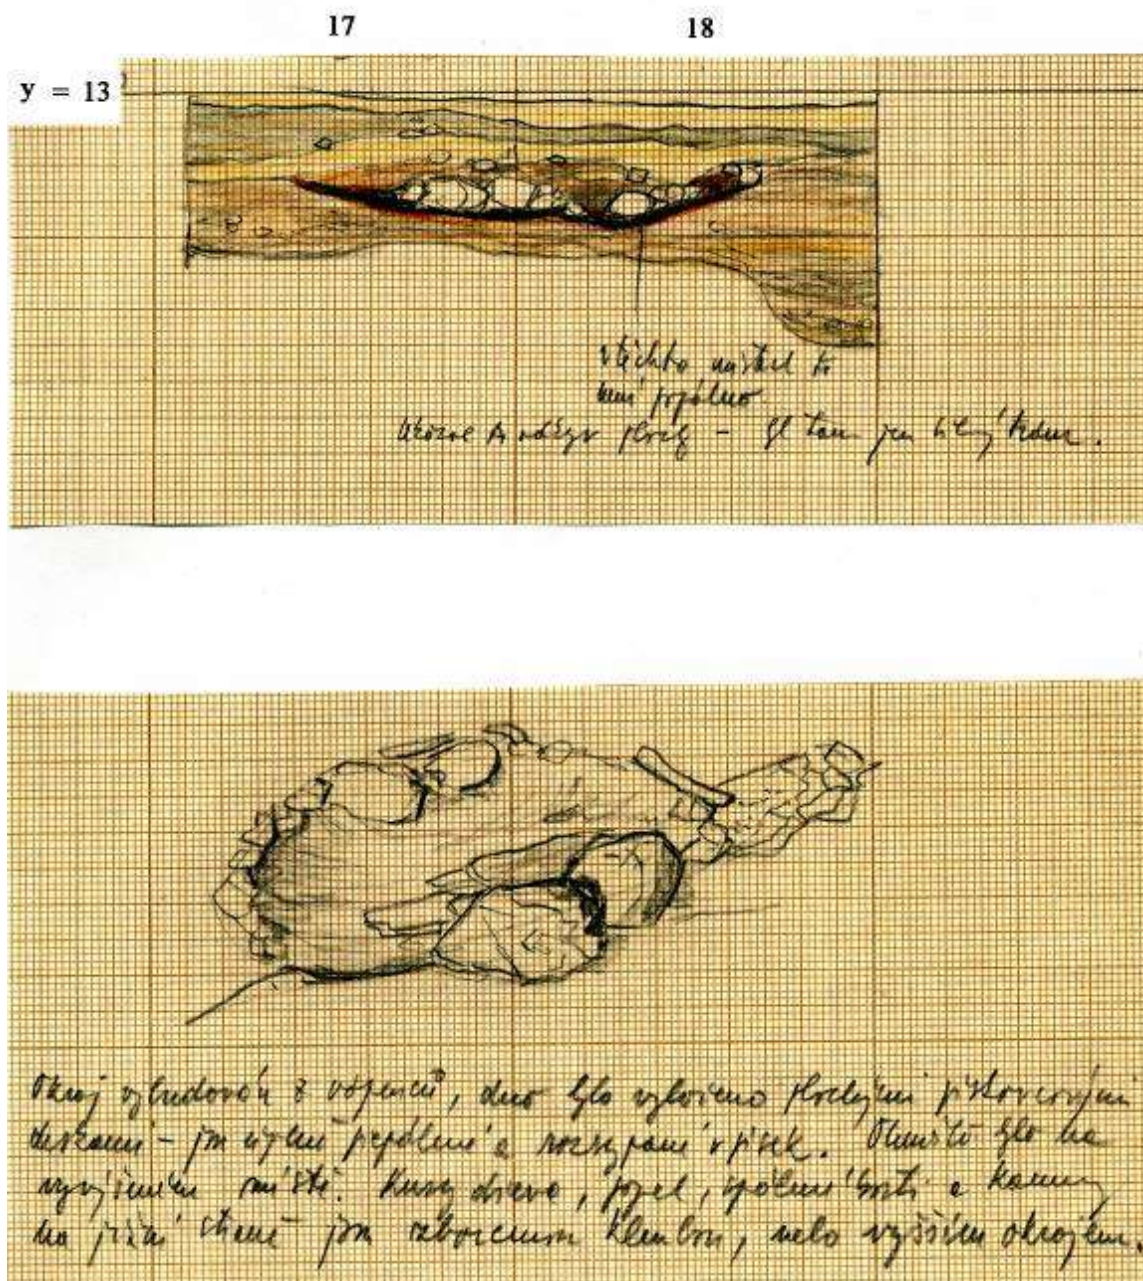 17 18
y = 13
v těchto místech to
není propáleno
– je tam jen bílý
Okraj vybudován z vápenců, dno bylo vyloženo plochými pískovcovými
deskami – jsou úplně přepálené a rozsypané v písek. Ohniště bylo na
vyvýšeném místě. Kusy dřeva, popel, spálené kosti a kameny
na jižní straně jsou zborcenou klenbou, nebo vyšším okrajem.